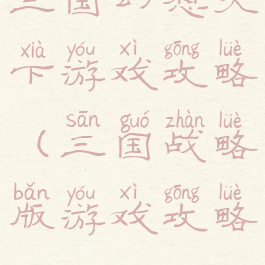 三国幻想天
xià yóu xì gōng lüè
下游戏攻略
sān guó zhàn lüè
(三国战略
bǎn yóu xì gōng lüè
版游戏攻略